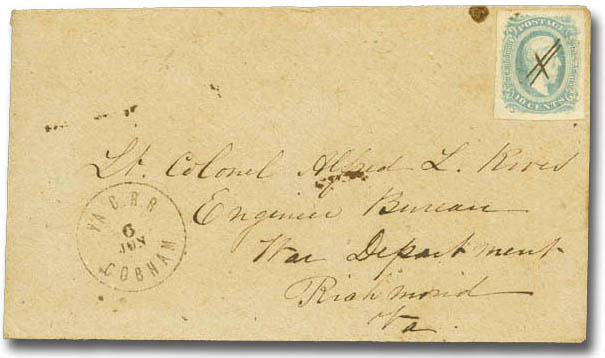 POSTAGE
10 CENTS
Lt. Colonel Alfred L. Rives
Engineer Bureau
War Department
Richmond
Va.
VA C. R. R
6
JUN
COBHAM